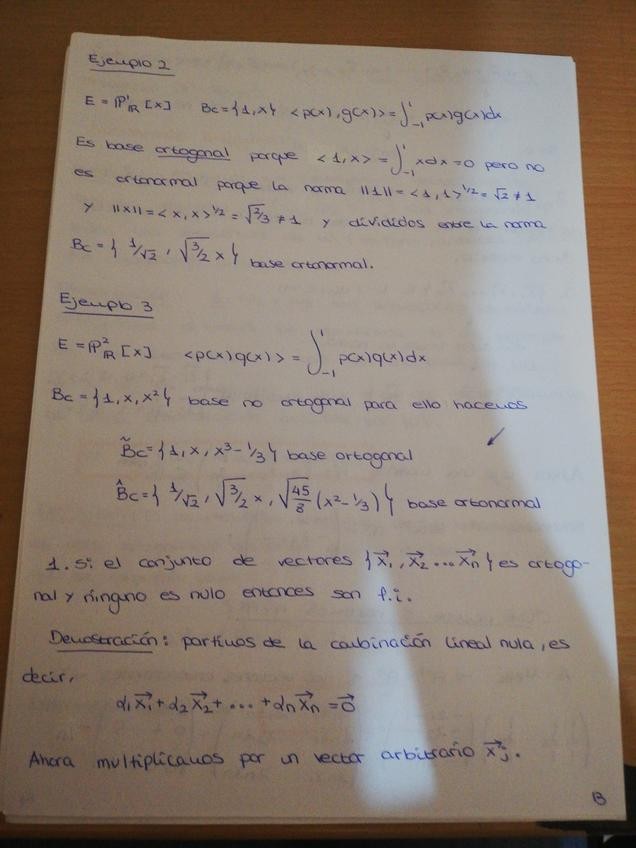 Ejemplo 2
E = ℙ¹_ℝ [x] Bc = {1, x} <p(x), g(x)> = ∫₋₁¹ p(x)g(x)dx
Es base ortogonal porque <1, x> = ∫₋₁¹ x dx = 0 pero no
es ortonormal porque la norma ||1|| = <1, 1>^1/2 = √2 ≠ 1
y ||x|| = <x, x>^1/2 = √2/3 ≠ 1 y divididos entre la norma
Bc = { 1/√2, √3/2 x } base ortonormal.
Ejemplo 3
E = ℙ²_ℝ [x] <p(x)g(x)> = ∫₋₁¹ p(x)g(x)dx
Bc = {1, x, x²} base no ortogonal para ello hacemos
B̃c = {1, x, x³ - 1/3} base ortogonal
B̂c = { 1/√2, √3/2 x, √45/8 (x² - 1/3) } base ortonormal
1. Si el conjunto de vectores {x⃗₁, x⃗₂ ... x⃗n} es ortogo-
nal y ninguno es nulo entonces son l.i.
Demostración: partimos de la combinación lineal nula, es
decir,
α₁x⃗₁ + α₂x⃗₂ + ... + αnx⃗n = 0⃗
Ahora multiplicamos por un vector arbitrario x⃗j.
13